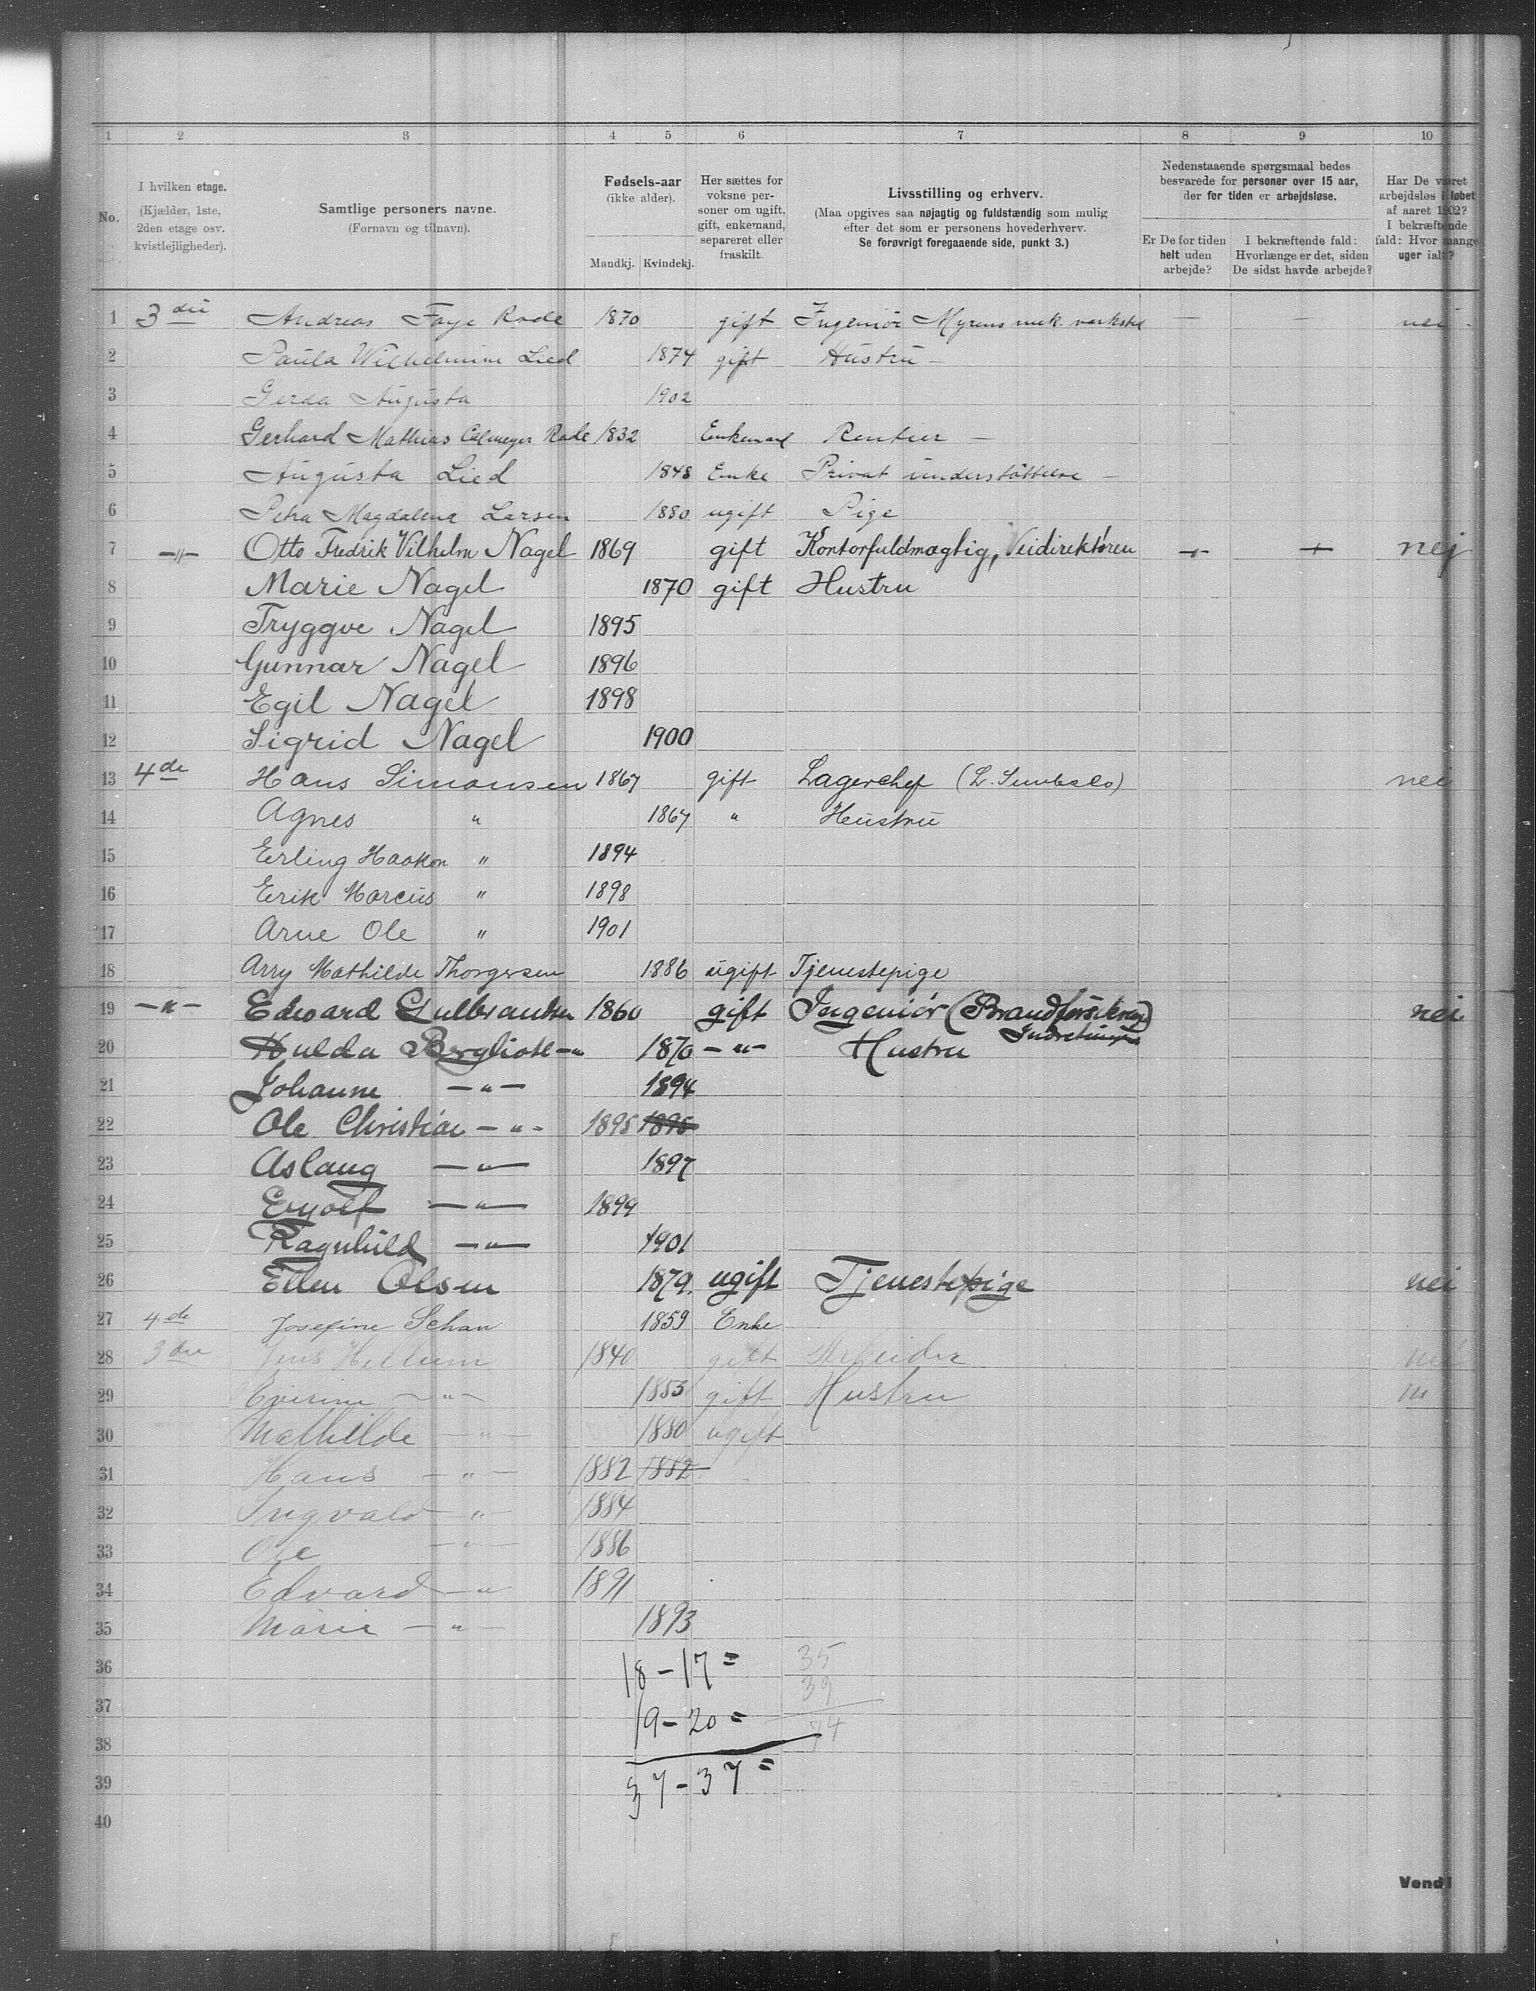 1 2 3 4 5 6 7 8 9 10
No.
I hvilken etage.
(Kjælder, 1ste,
2den etage osv.
kvistlejligheder).
Samtlige personers navne.
(Fornavn og tilnavn).
Fødsels-aar
(ikke alder).
Mandkj. Kvindekj.
Her sættes for
voksne per-
soner om ugift,
gift, enkemand,
separeret eller
fraskilt.
Livsstilling og erhverv.
(Maa opgives saa nøjagtig og fuldstændig som mulig
efter det som er personens hovederhverv.
Se forøvrigt foregaaende side, punkt 3.)
Nedenstaaende spørgsmaal bedes
besvarede for personer over 15 aar,
der for tiden er arbejdsløse.
Er De for tiden
helt uden
arbejde?
I bekræftende fald:
Hvorlænge er det, siden
De sidst havde arbejde?
Har De været
arbejdsløs i løbet
af aaret 1902?
I bekræftende
fald: Hvor mange
uger ialt?
1 3die Andreas Faye Rode 1870 gift Ingeniør Myrens mek. verksted — — nei
2 Paula Wilhelmine Lied 1874 gift Hustru –
3 Gerda Augusta 1902
4 Gerhard Mathias Calmeyer Rode 1832 Enkemand Rentier —
5 Augusta Lied 1848 Enke Privat understøttelse –
6 Petra Magdalena Larsen 1880 ugift Pige
7 —"— Otto Fredrik Vilhelm Nagel 1869 gift Kontorfuldmægtig, Veidirektøren + + nej
8 Marie Nagel 1870 gift Hustru
9 Tryggve Nagel 1895
10 Gunnar Nagel 1896
11 Egil Nagel 1898
12 Sigrid Nagel 1900
13 4de Hans Simonsen 1867 gift Lagerchef nei
14 Agnes " 1867 " Hustru
15 Erling Haakon " 1894
16 Erik Marcus " 1898
17 Arne Ole " 1901
18 Arry Mathilde Thorgersen 1886 ugift Tjenestepige
19 —"— Edvard Gulbrandsen 1860 gift Ingeniør (Brandforsikring) nei
Indretning
20 Hulda Bergliot —"— 1870 —"— Hustru
21 Johanne —"— 1894
22 Ole Christian —"— 1895 1895
23 Aslaug —"— 1897
24 Eyolf —"— 1899
25 Ragnhild —"— 1901
26 Ellen Olsen 1879. ugift Tjenestepige nei
27 4de Josefine Schau 1859 Enke
28 3die Jens Hellum 1840 gift Arbeider nei
29 —"— 1853 gift Hustru
30 Mathilde —"— 1880 ugift
31 Hans —"— 1882 1882
32 Ingvald —"— 1884
33 Ole —"— 1886
34 Edvard —"— 1891
35 Marie —"— 1893
36 18 – 17 = 35
37 19 – 20 = 39
38 74
39 37 – 37 =
40
Vend!